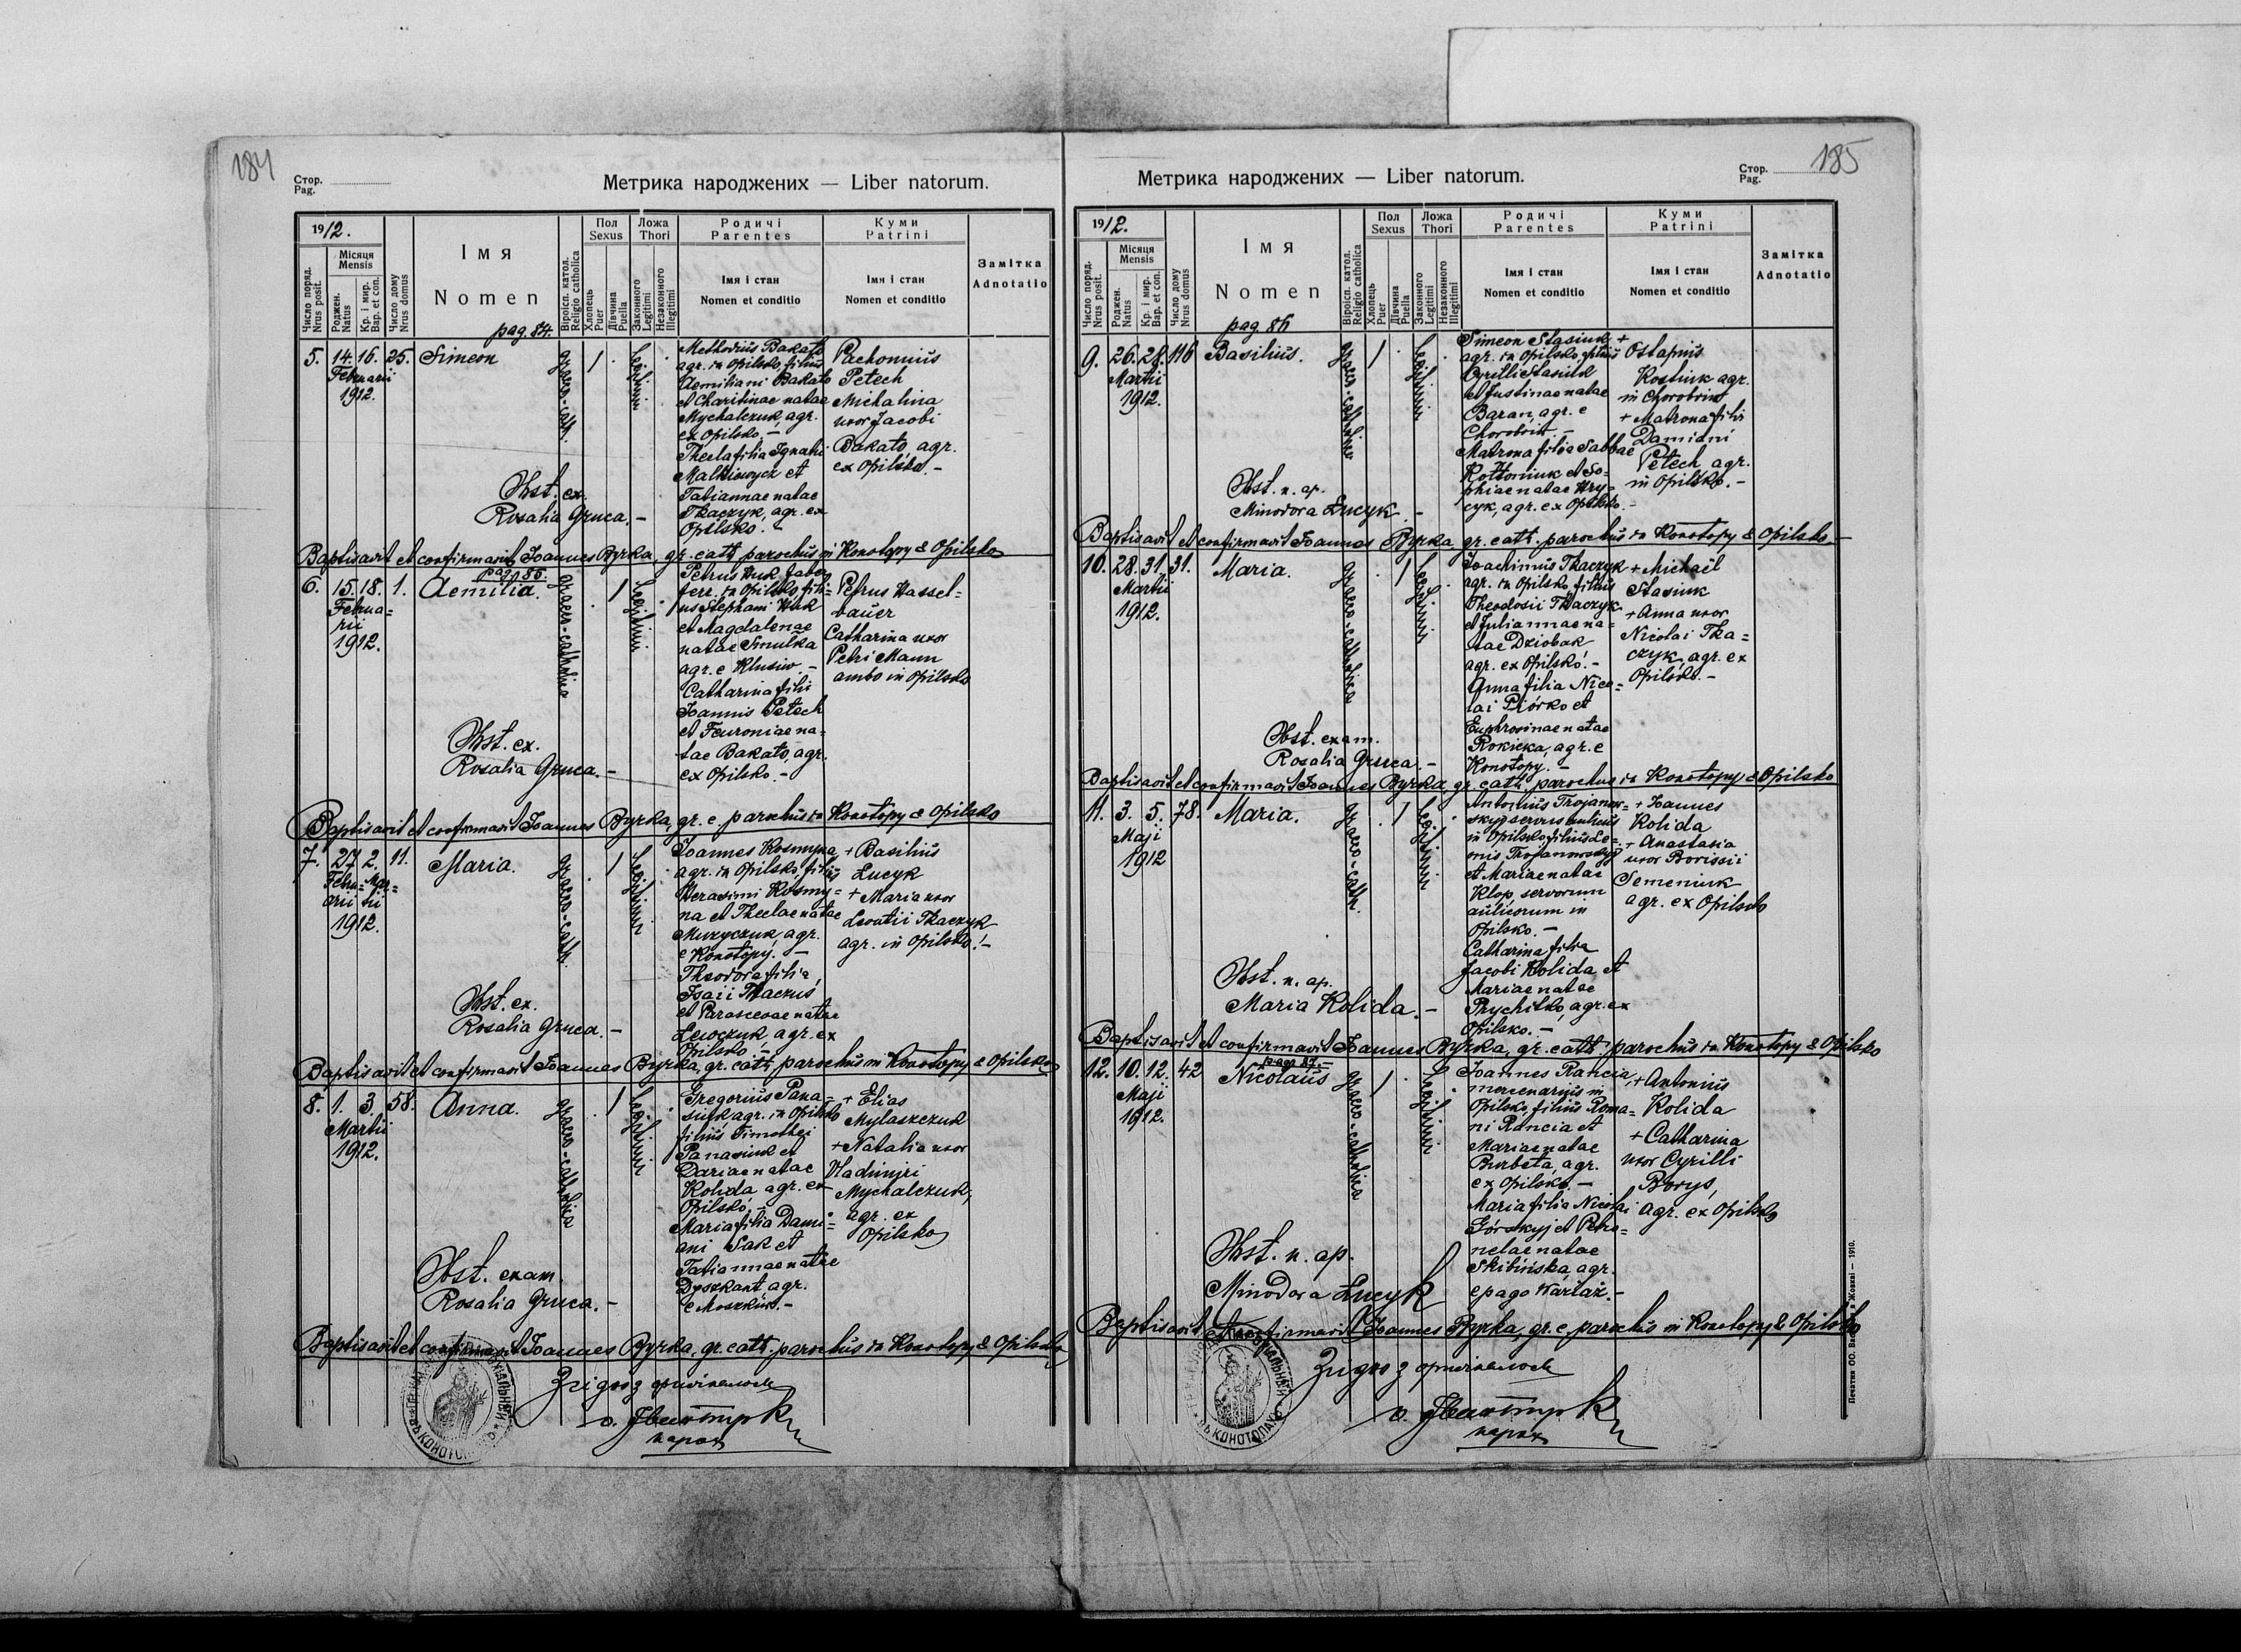 184
Стор.
Pag.
Метрика народжених — Liber natorum.
1912.
Число поряд.
Nrus posit.
Місяця
Mensis
Роджен.
Natus
Кр. і мир.
Bap. et con.
Число дому
Nrus domus
Імя
Nomen
Віроісп. катол.
Religio catholica
Пол
Sexus
Хлопець
Puer
Дівчина
Puella
Ложа
Thori
Законного
Legitimi
Незаконного
Illegitimi
Родичі
Parentes
Імя і стан
Nomen et conditio
Куми
Patrini
Імя і стан
Nomen et conditio
Замітка
Adnotatio
pag. 84.
5. 14. 16. 25. Simeon
Februarii
1912.
graeco-cath.
1
Legitimi
Methodius Bakato
agr. in Opilsko, filius
Aemiliani Bakato
et Charitinae natae
Mychalczuk, agr.
ex Opilsko. –
Thecla filia Ignatii
Malkiewycz et
Tatiannae natae
Tkaczyk, agr. ex
Opilsko. –
Pachomius
Petech
Michalina
uxor Jacobi
Bakato, agr.
ex Opilsko. –
Obst. ex.
Rosalia Gruca. –
Baptisavit et confirmavit Joannes Byrka, gr. cath. parochus in Konotopy & Opilsko
pag. 85.
6. 15. 18. 1. Aemilia.
Februa=
rii
1912.
graeco-catholica
1
Legitimi
Petrus Huk faber
ferr. in Opilsko fili=
us Stephani Huk
et Magdalenae
natae Smulka
agr. e Klusiw –
Catharina filia
Joannis Petech
et Feuroniae na=
tae Bakato, agr.
ex Opilsko. –
Petrus Hassel=
bauer
Catharina uxor
Petri Mann
ambo in Opilsko
Obst. ex.
Rosalia Gruca. –
Baptisavit et confirmavit Joannes Byrka, gr. c. parochus in Konotopy & Opilsko
7. 27 2. 11. Maria.
Febru= Mar=
arii tii
1912.
graeco-cath.
1
Legitimi
Joannes Kosmyna
agr. in Opilsko, filius
Herasimi Kosmy=
na et Theclae natae
Muzyczuk, agr.
e Konotopy. –
Theodora filia
Isaii Tkaczus
et Parascevae natae
Lewczuk, agr. ex
Opilsko. –
+ Basilius
Łucyk
+ Maria uxor
Leontii Tkaczyk
agr. in Opilsko! –
Obst. ex.
Rosalia Gruca. –
Baptisavit et confirmavit Joannes Byrka, gr. cath. parochus in Konotopy & Opilsko
8. 1. 3. 58. Anna.
Martii
1912.
graeco-catholica
1
Legitimi
Gregorius Pana=
siuk agr. in Opilsko
filius Timothei
Panasiuk et
Dariae natae
Kolida agr. ex
Opilsko. –
Maria filia Dami=
ani Sak et
Tatiannae natae
Dyszkant, agr.
e Moszków. –
+ Elias
Mylaszczuk
+ Natalia uxor
Vladimiri
Mychalczuk,
agr. ex
Opilsko
Obst. exam.
Rosalia Gruca. –
Baptisavit et confirmavit Joannes Byrka, gr. cath. parochus in Konotopy & Opilsko
Згідно з оригіналом
парох
185
Стор.
Pag.
Метрика народжених — Liber natorum.
1912.
Число поряд.
Nrus posit.
Місяця
Mensis
Роджен.
Natus
Кр. і мир.
Bap. et con.
Число дому
Nrus domus
Імя
Nomen
Віроісп. катол.
Religio catholica
Пол
Sexus
Хлопець
Puer
Дівчина
Puella
Ложа
Thori
Законного
Legitimi
Незаконного
Illegitimi
Родичі
Parentes
Імя і стан
Nomen et conditio
Куми
Patrini
Імя і стан
Nomen et conditio
Замітка
Adnotatio
pag. 86
9. 26. 28. 116 Basilius.
Martii
1912.
graeco-catholica
1
Legitimi
Simeon Stasiuk
agr. in Opilsko, filius
Cyrilli Stasiuk
et Justinae natae
Baran, agr. e
Chorobriw –
Matrona filia Sabbae
Kołtoniuk et So=
phiae natae Hry=
cyk, agr. ex Opilsko. –
+
Ostapius
Kostiuk agr.
in Chorobriw
+ Matrona filia
Damiani
Petech agr.
in Opilsko. –
Obst. n. ap.
Minodora Łucyk. –
Baptisavit et confirmavit Joannes Byrka, gr. cath. parochus in Konotopy & Opilsko. –
10. 28. 31. 31. Maria.
Martii
1912.
graeco-catholica
1
Legitimi
Joachimus Tkaczyk
agr. in Opilsko, filius
Theodosii Tkaczyk
et Juliannae na=
tae Dziobak
agr. ex Opilsko! –
Anna filia Nico=
lai Piórko et
Euphrosinae natae
Rokicka, agr. e
Konotopy. –
+ Michaël
Stasiuk
+ Anna uxor
Nicolai Tka=
czyk, agr. ex
Opilsko. –
Obst. exam.
Rosalia Gruca. –
Baptisavit et confirmavit Joannes Byrka, gr. cath. parochus in Konotopy & Opilsko
11. 3. 5. 78. Maria.
Maji
1912
graeco-cath.
1
Legitimi
Antonius Trojanow=
skyj servus aulicus
in Opilsko, filius Le=
onis Trojanowskyj
et Mariae natae
Klop, servorum
aulicorum in
Opilsko. –
Catharina filia
Jacobi Kolida et
Mariae natae
Prychitko, agr. ex
Opilsko. –
+ Joannes
Kolida
+ Anastasia
uxor Borissii
Semeniuk
agr. ex Opilsko
Obst. n. ap.
Maria Kolida. –
Baptisavit et confirmavit Joannes Byrka, gr. cath. parochus in Konotopy & Opilsko
pag. 87.
12. 10. 12. 42 Nicolaus
Maji
1912.
graeco-catholica
1
Legitimi
Joannes Rancia,
mercenarius in
Opilsko, filius Roma=
ni Rancia et
Mariae natae
Burbeta, agr.
ex Opilsko. –
Maria filia Nicolai
Górskyj et Petro=
nelae natae
Skibińska, agr.
e pago Wariaż. –
+ Antonius
Kolida
+ Catharina
uxor Cyrilli
Borys,
agr. ex Opilsko
Obst. n. ap.
Minodora Łucyk
Baptisavit et confirmavit Joannes Byrka, gr. c. parochus in Konotopy & Opilsko
Згідно з оригіналом
парох